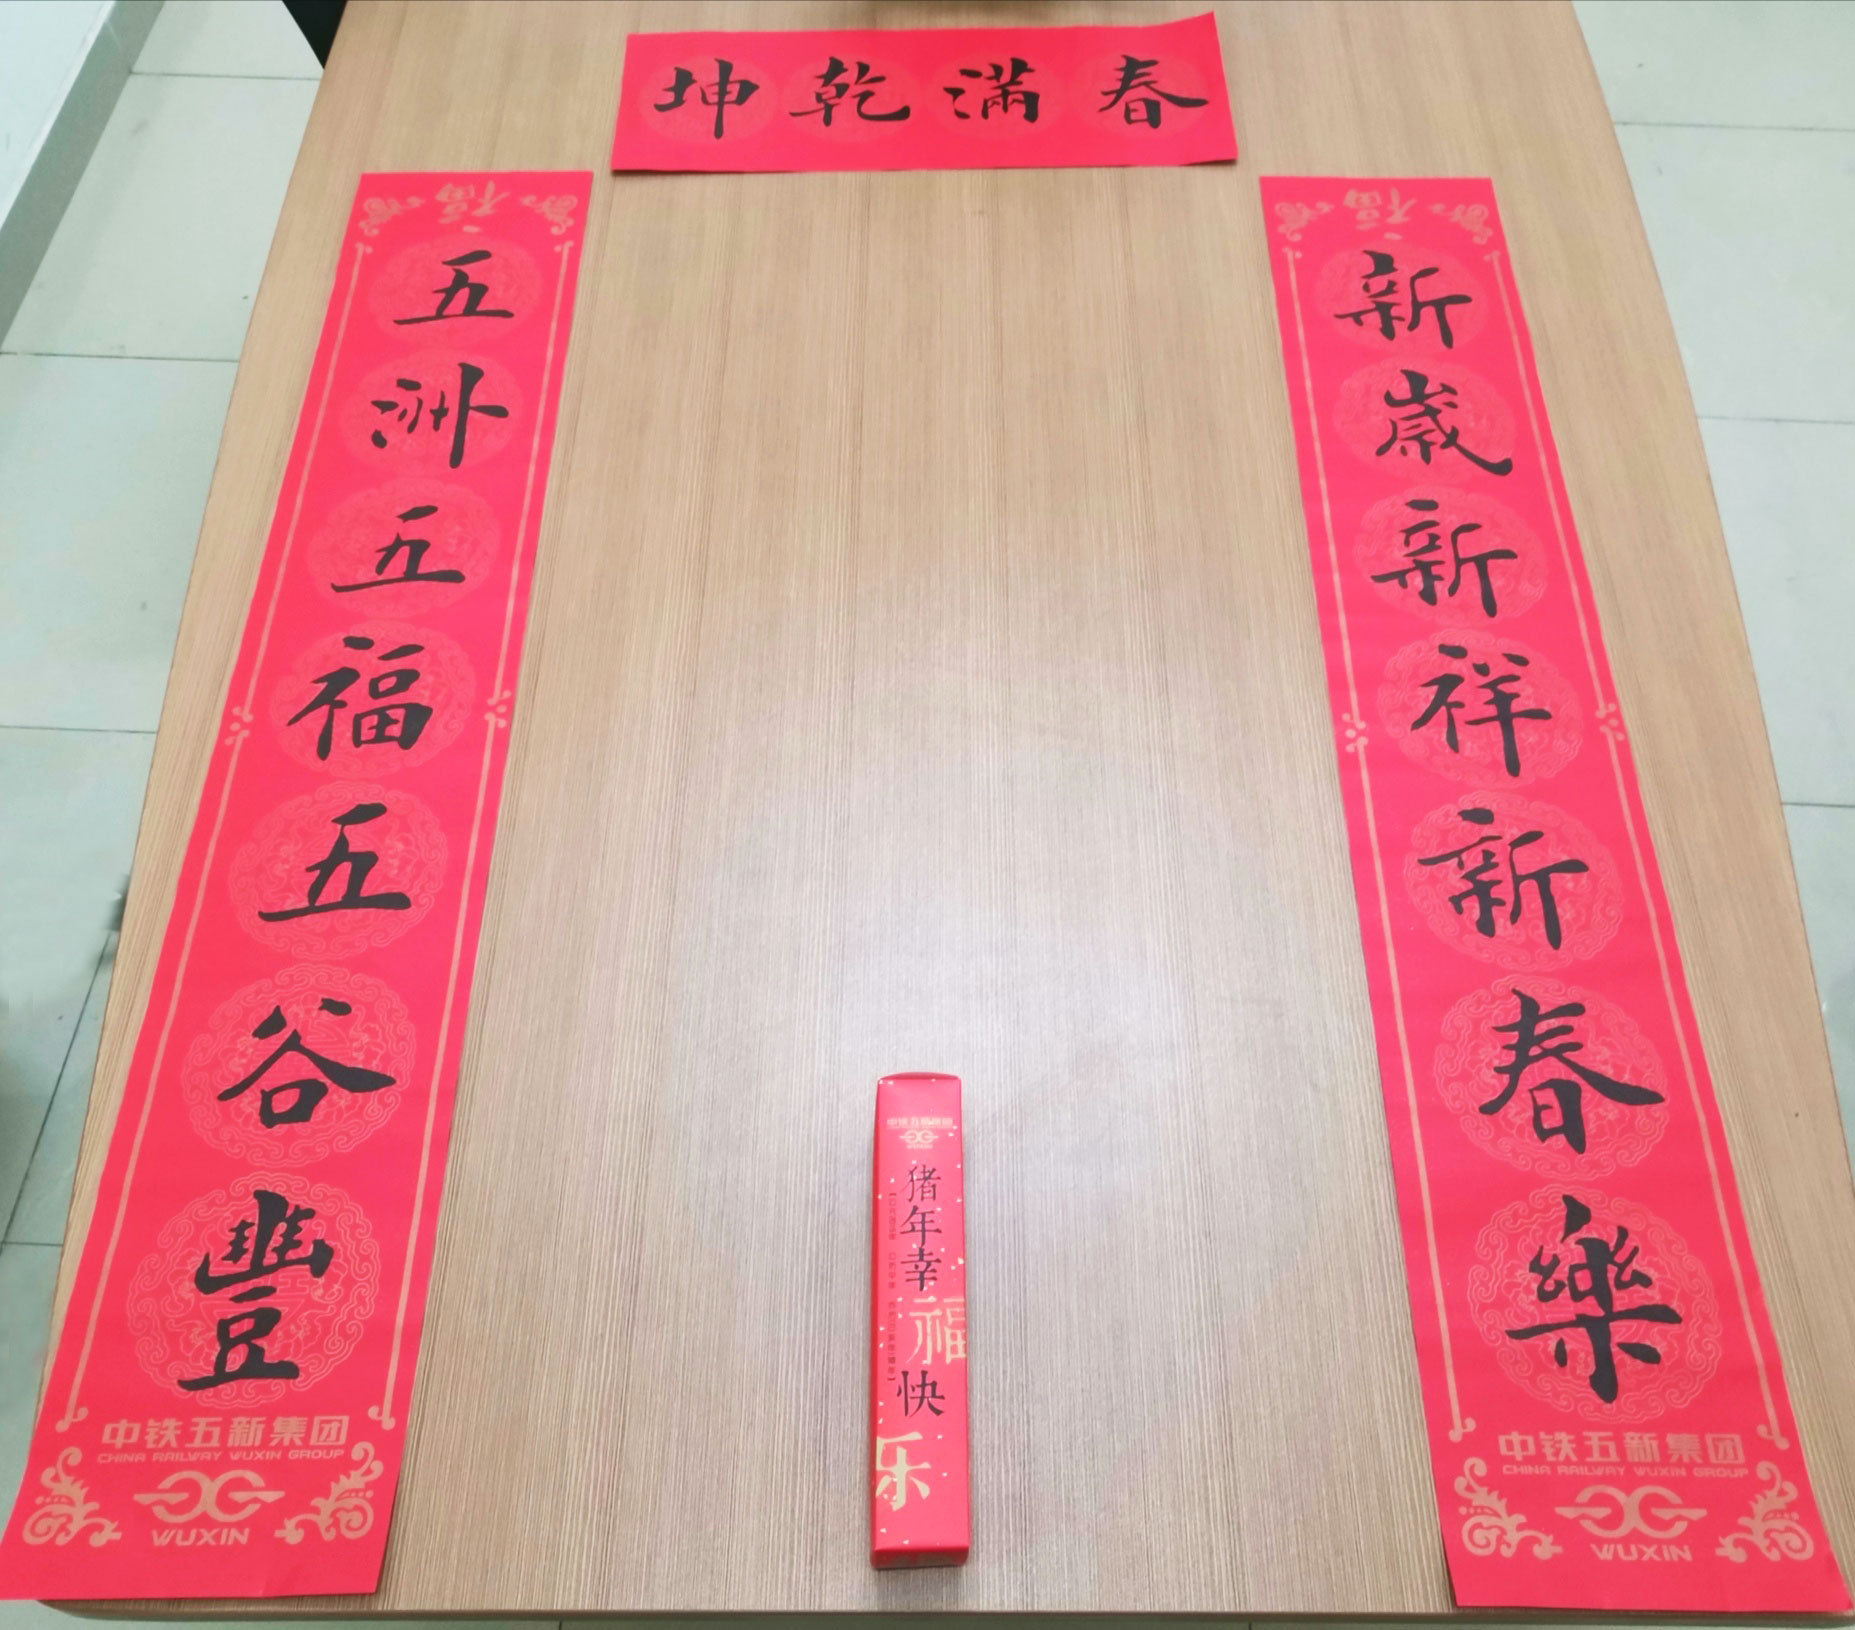 春滿乾坤
新歲新祥新春樂
中铁五新集团
CHINA RAILWAY WUXIN GROUP
WUXIN
五洲五福五谷豐
中铁五新集团
CHINA RAILWAY WUXIN GROUP
WUXIN
中铁五新集团
WUXIN
猪年幸福快乐
福
福